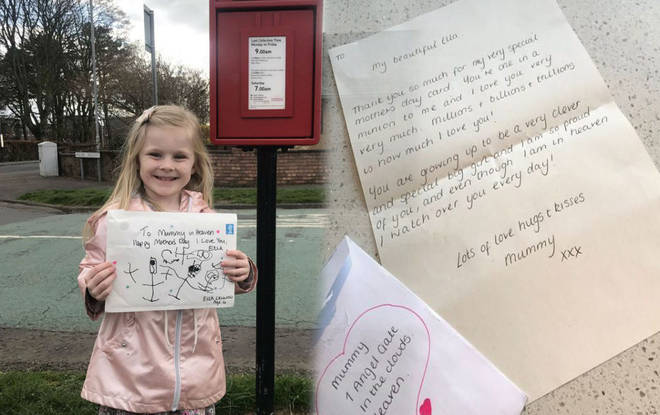 Last Collection Time
Monday to Friday
9.00am
Saturday
7.00am
To Mummy in Heaven
Happy Mothers Day I Love You,
Ella
ELLA
Age
To
My beautiful Ella.
Thank you so much for my very special
mothers day card. You're one in a
million to me and I love you very
very much. Millions + billions + trillions
is how much I love you!
You are growing up to be a very clever
and special big girl and I am so proud
of you, and even though I am in heaven
I watch over you every day!
Lots of love hugs + kisses
Mummy xxx
Mummy
1 Angel Gate
in the clouds
Heaven.